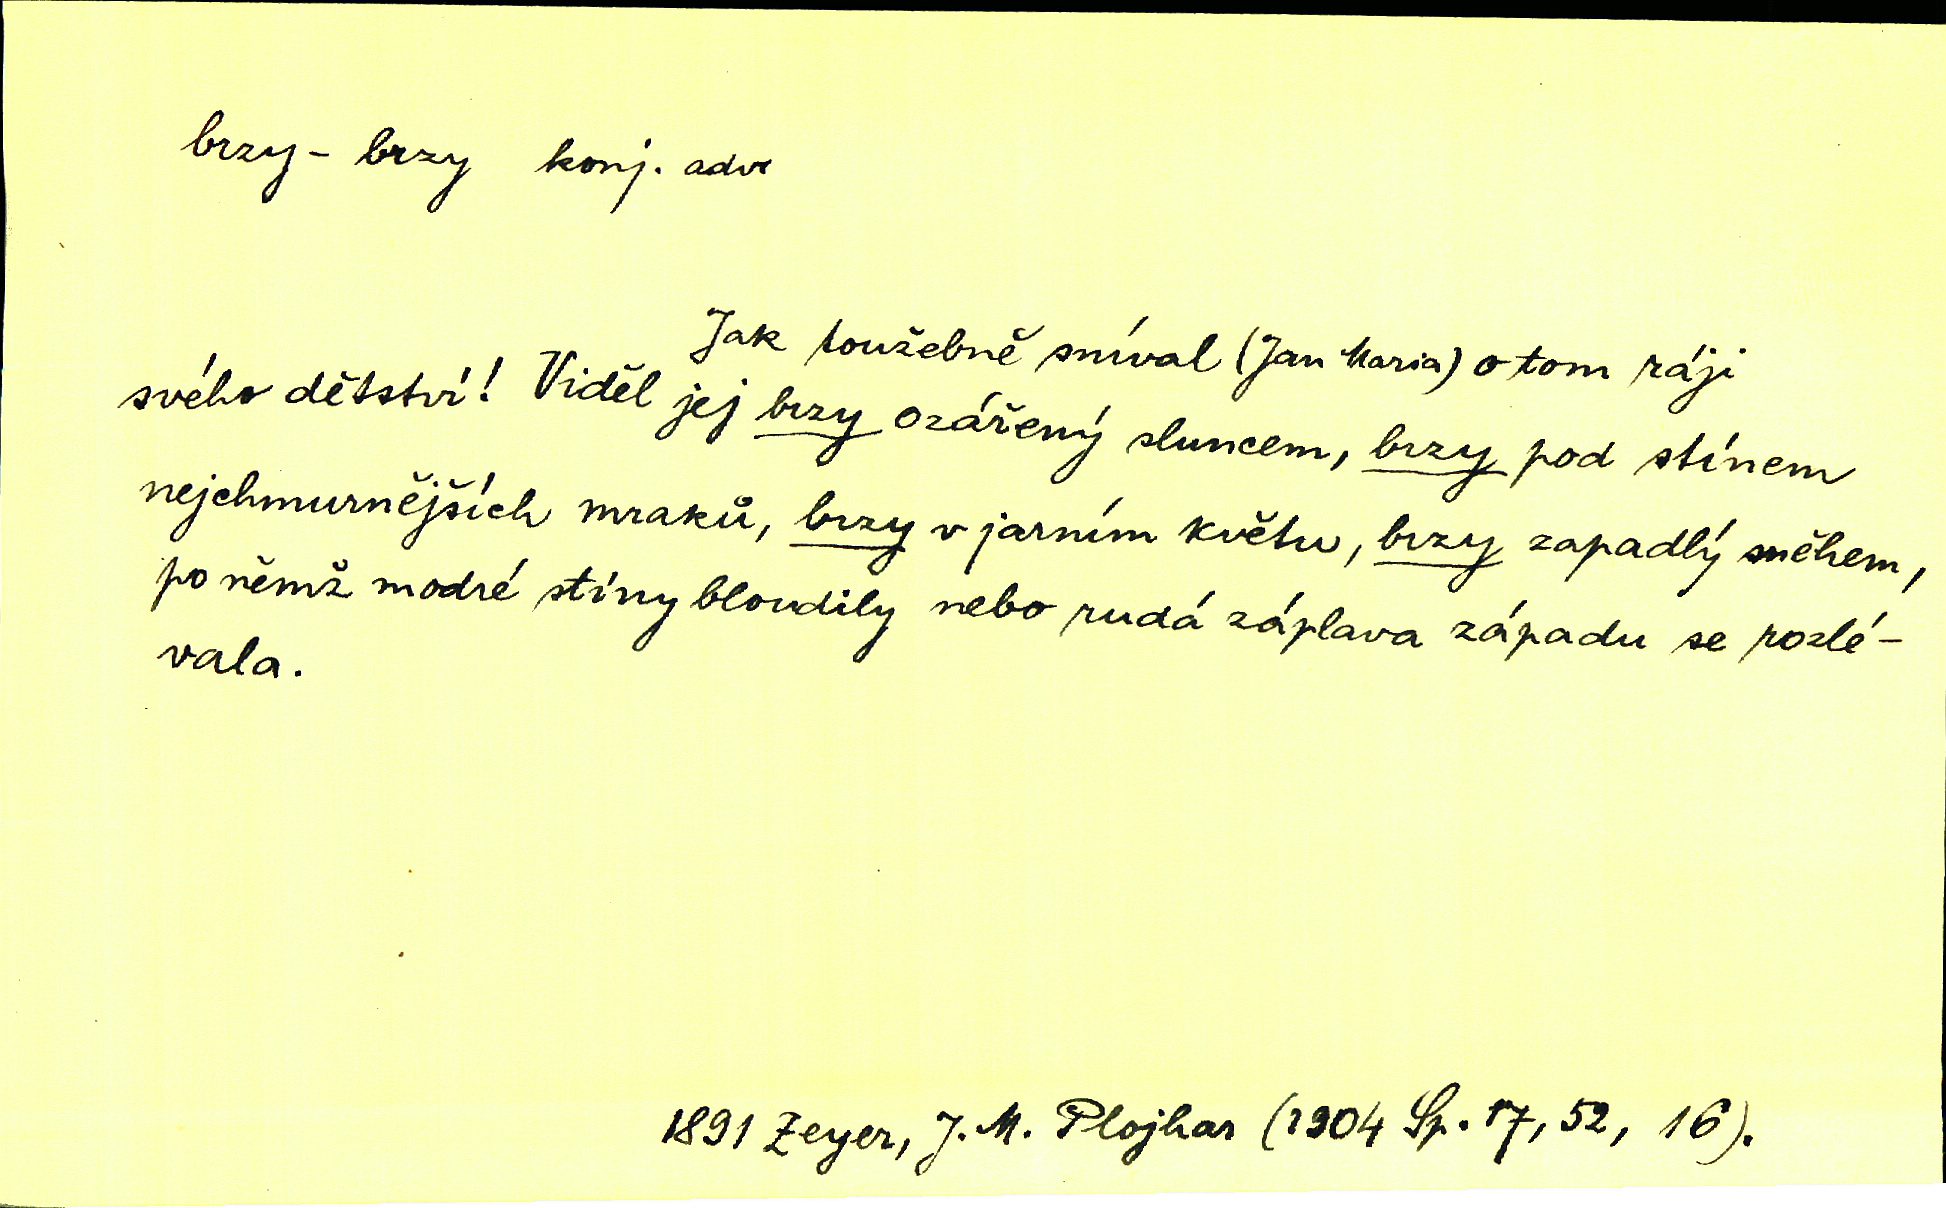 brzy - brzy konj. adv
Jak toužebně sníval (Jan Maria) o tom ráji
svého dětství! Viděl jej brzy ozářený sluncem, brzy pod stínem
nejchmurnějších mraků, brzy v jarním květu, brzy zapadlý sněhem,
po němž modré stíny bloudily nebo rudá záplava západu se rozlé-
vala.
1891 Zeyer, J. M. Plojhar (1904 Sp. 17, 52, 16).